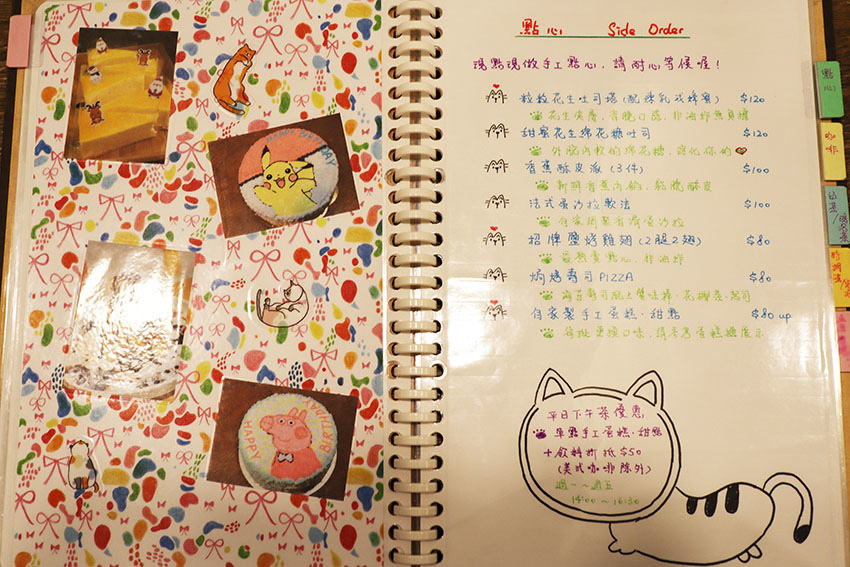 HAPPY BirthDAY
HAPPY BIRTHDAY
點心 Side Order
現點現做手工點心,請耐心等候喔!
粒粒花生吐司塔(配煉乳或蜂蜜) $120
花生夾層,香脆口感,非油炸無負擔
甜蜜花生棉花糖吐司 $120
外脆內軟的棉花糖,溶化你的
香蕉酥皮派(3件) $100
新鮮香蕉內餡,鬆脆酥皮
法式蛋沙拉軟法 $100
自家調製香濃蛋沙拉
招牌鹽烤雞翅(2腿2翅) $80
最熱賣點心,非油炸
焗烤壽司PIZZA $80
海苔壽司配上蟹味棒、花椰菜、起司
自家製手工蛋糕、甜點 $80 up
每批更換口味,請參考蛋糕櫃展示
平日下午茶優惠
單點手工蛋糕、甜點
+飲料折抵$50
(美式咖啡除外)
週一~週五
14:00~16:30
點心
咖啡